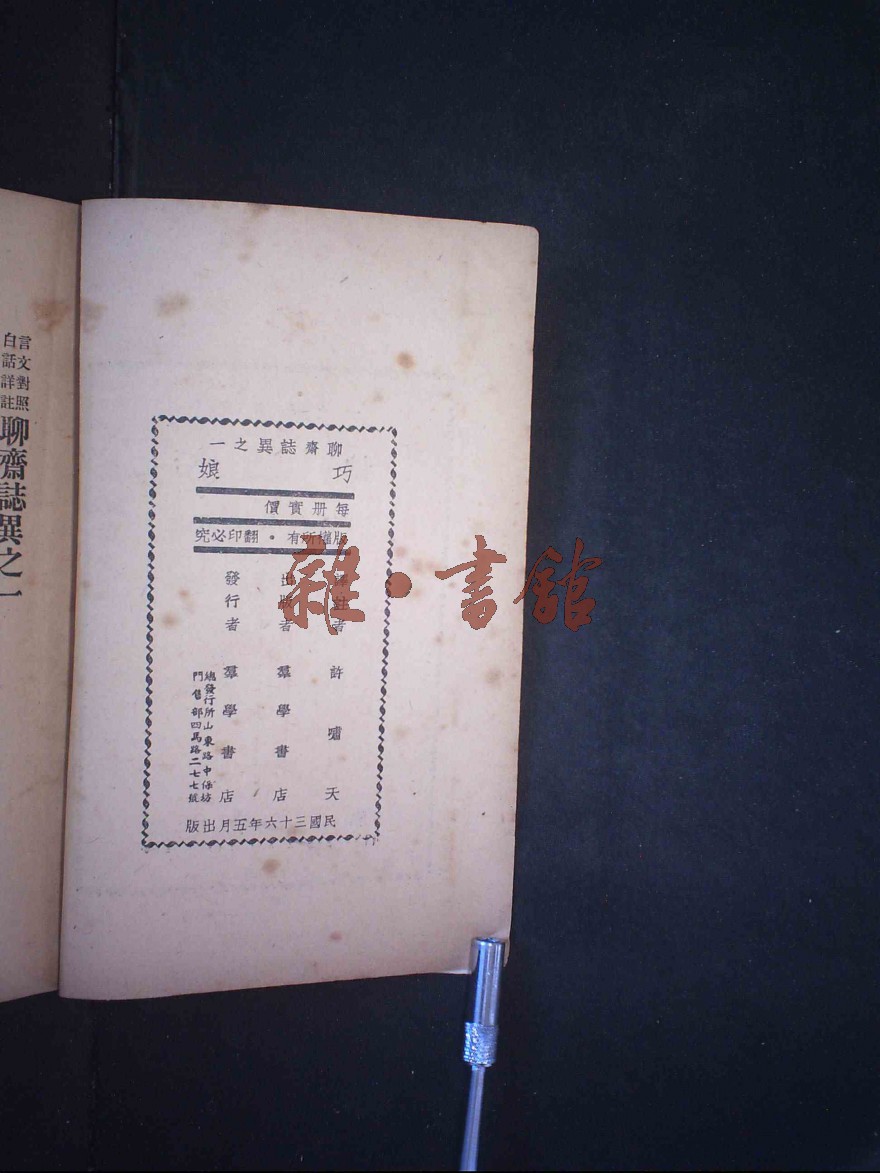 聊齋誌異之一
巧娘
每册實價
版權所有・翻印必究
譯註者 許嘯天
出版者 羣學書店
發行者 羣學書店
總發行所山東路中保坊
門售部四馬路二七七號
民國三十六年五月出版
言文對照
白話詳註
聊齋誌異之一
雜・書館